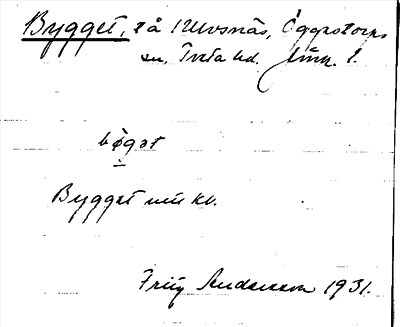 Bygget, tå Ulvsnäs, Öggestorps
sn. Tveta hd. Jönk. l.
bøgət
Bygget
Fritz Andersson 1931.